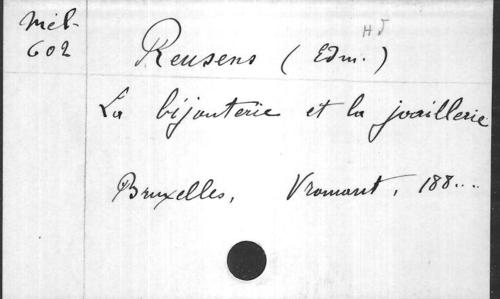 Mél.
602
HJ
Reusens (Edm.)
La bijouterie et la joaillerie
Bruxelles, Vromant, 188....